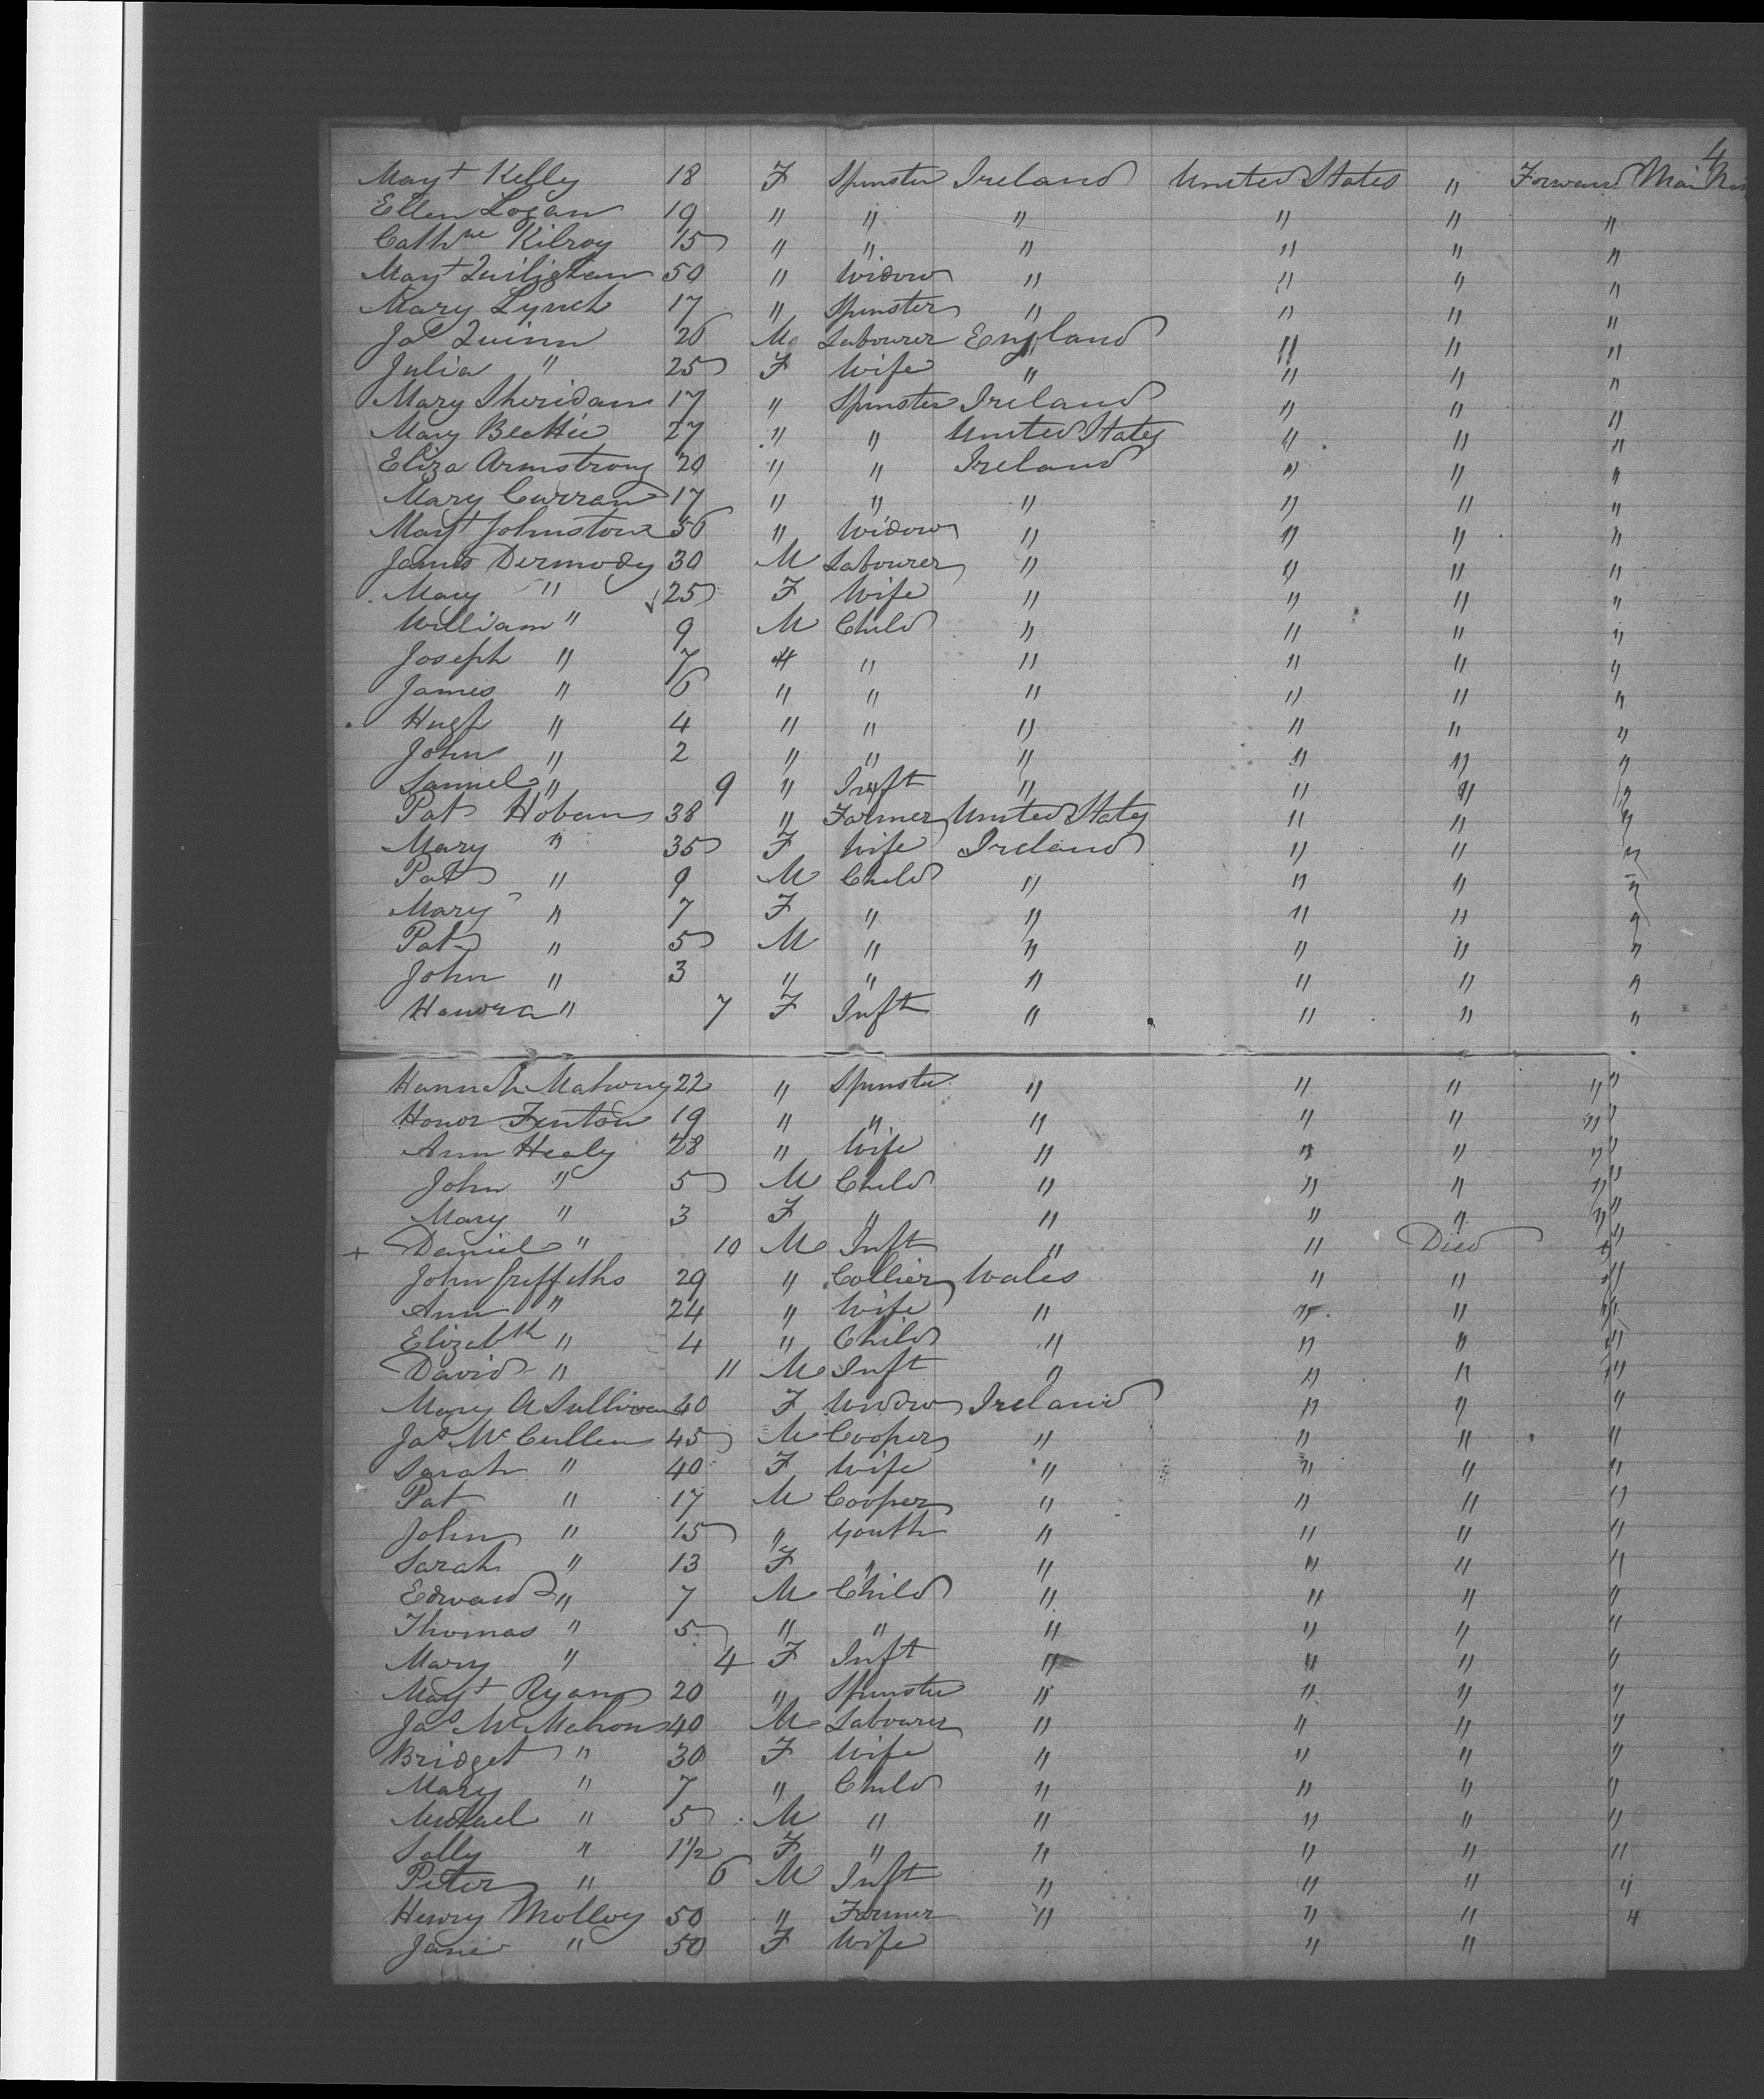 4
Mayt Kelly 18 F Spinster Ireland United States " Forward Main
Ellen Logan 19 " " " " " "
Cathne Kilroy 15 " " " " " "
Mayt Quilighan 50 " Widow " " " "
Mary Lynch 17 " Spinster " " " "
Jas Quinn 26 M Labourer England " " "
Julia " 25 F Wife " " " "
Mary Sheridan 17 " Spinster Ireland " " "
Mary Beattie 27 " " United States " " "
Eliza Armstrong 20 " " Ireland " " "
Mary Curran 17 " " " " " "
Mayt Johnston 56 " Widow " " " "
James Dermody 30 M Labourer " " " "
Mary " 25 F Wife " " " "
William " 9 M Child " " " "
Joseph " 7 " " " " " "
James " 6 " " " " " "
Hugh " 4 " " " " " "
John " 2 " " " " " "
Samuel " 9 " Inft " " " "
Pat Hoban 38 " Farmer United States " " "
Mary " 35 F Wife Ireland " " "
Pat " 9 M Child " " " "
Mary " 7 F " " " " "
Pat " 5 M " " " " "
John " 3 " " " " " "
Honora " 7 F Inft " " " "
Hannah Mahony 22 " Spinster " " " " "
Honor Fenton 19 " " " " " " "
Ann Healy 28 " Wife " " " " "
John " 5 M Child " " " " "
Mary " 3 F " " " " " "
+ Daniel " 10 M Inft " " Died " "
John Griffiths 29 " Collier Wales " " " "
Ann " 24 " Wife " " " " "
Elizabth " 4 " Child " " " " "
David " 11 M Inft " " " " "
Mary A Sullivan 40 F Widow Ireland " " "
Jas McCullen 45 M Cooper " " " "
Sarah " 40 F Wife " " " "
Pat " 17 M Cooper " " " "
John " 15 " Youth " " " "
Sarah " 13 F " " " " "
Edward " 7 M Child " " " "
Thomas " 5 " " " " " "
Mary " 4 F Inft " " " "
Mayt Ryan 20 " Spinster " " " "
Jas McMahon 40 M Labourer " " " "
Bridget " 30 F Wife " " " "
Mary " 7 " Child " " " "
Michael " 5 M " " " " "
Sally " 1½ F " " " " "
Peter " 6 M Inft " " " "
Henry Molloy 50 " Farmer " " " "
Jane " 50 F Wife " "